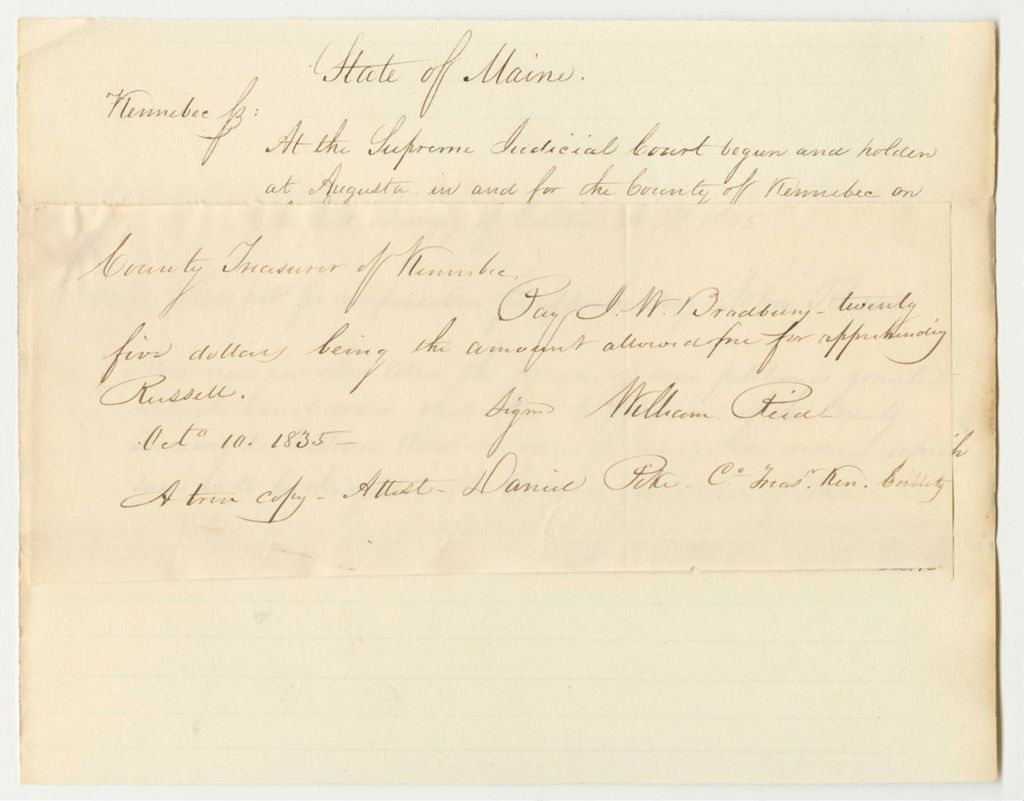 State of Maine.
Kennebec ss:
At the Supreme Judicial Court begun and holden
at Augusta in and for the County of Kennebec on
County Treasurer of Kennebec.
Pay J. W. Bradbury - twenty
five dollars being the amount allowed for apprehending
Russell.
Sign William Reid
Octo 10. 1835 -
A true copy - Attest - Daniel Pike - Co. Treasr. Ken. County